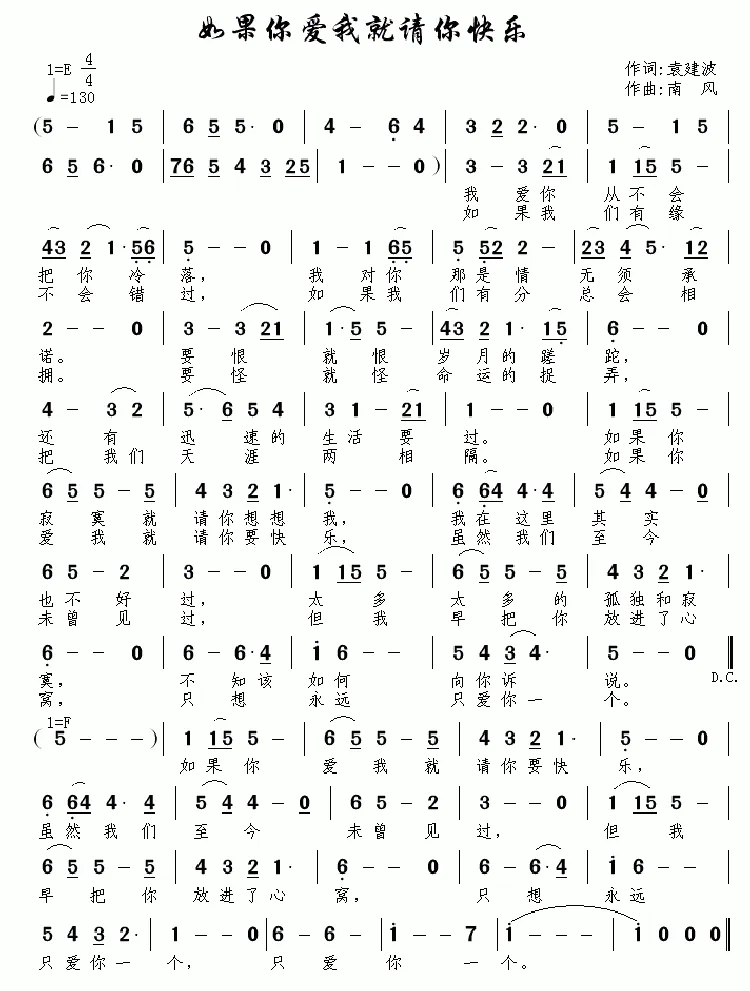 如果你爱我就请你快乐
1=E 4/4
♩=130
作词:袁建波
作曲:南 风
(5 - 1 5 | 6 5 5· 0 | 4 - 6 4 | 3 2 2· 0 | 5 - 1 5 |
6 5 6· 0 | 76 5 4 3 25 | 1 - - 0 ) | 3 - 3 21 | 1 15 5 - |
我 爱你 从不会
如 果我 们有缘
43 2 1· 56 | 5 - - 0 | 1 - 1 65 | 5 52 2 - | 23 4 5· 12 |
把 你 冷 落, 我 对你 那是情 无 须 承
不 会 错 过, 如 果我 们有分 总 会 相
2 - - 0 | 3 - 3 21 | 1· 5 5 - | 43 2 1· 15 | 6 - - 0 |
诺。 要恨 就恨 岁月的蹉 跎,
拥。 要怪 就怪 命运的捉 弄,
4 - 3 2 | 5· 6 5 4 | 3 1 - 21 | 1 - - 0 | 1 15 5 - |
还 有 迅 速的 生活要 过。 如果你
把 我们 天 涯 两 相 隔。 如果你
6 5 5 - 5 | 4 3 2 1· | 5 - - 0 | 6 64 4· 4 | 5 4 4 - 0 |
寂 寞 就 请你想想 我, 我在 这里 其 实
爱 我 就 请你要快 乐, 虽然 我们 至 今
6 5 - 2 | 3 - - 0 | 1 15 5 - | 6 5 5 - 5 | 4 3 2 1 |
也不 好 过, 太 多 太 多 的 孤独和寂
未曾 见 过, 但 我 早 把 你 放进了心
6 - - 0 | 6 - 6· 4 | 1 6 - - | 5 4 3 4· | 5 - - 0 ‖
寞, 不 知该 如何 向你诉 说。 D.C.
窝, 只 想 永远 只爱你一 个。
1=F
( 5 - - - ) | 1 15 5 - | 6 5 5 - 5 | 4 3 2 1· | 5 - - 0 |
如果 你 爱 我 就 请你要快 乐,
6 64 4· 4 | 5 4 4 - 0 | 6 5 - 2 | 3 - - 0 | 1 15 5 - |
虽然 我们 至 今 未曾 见 过, 但 我
6 5 5 - 5 | 4 3 2 1· | 6 - - 0 | 6 - 6· 4 | 1 6 - - |
早 把 你 放进了心 窝, 只 想 永远
5 4 3 2· | 1 - - 0 | 6 - 6 - | 1 - - 7 | 1 - - - | 1 0 0 0 ‖
只爱你一 个, 只 爱 你 一 个。